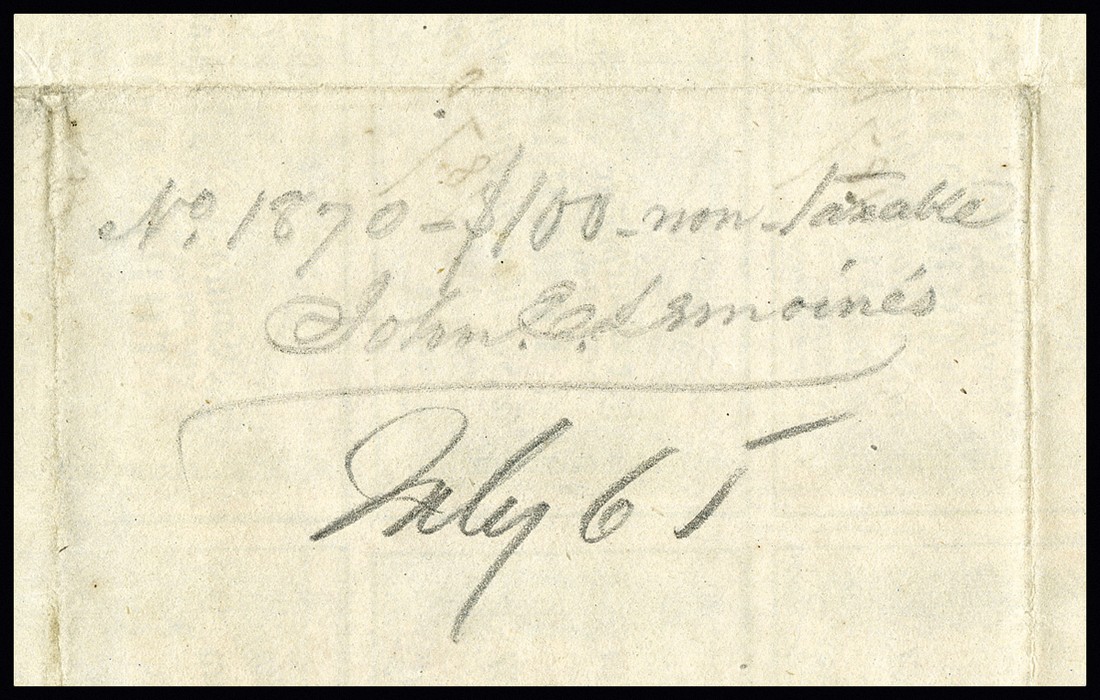 No. 1870 - $100 - non-taxable
John C. Lemoine's
July 65